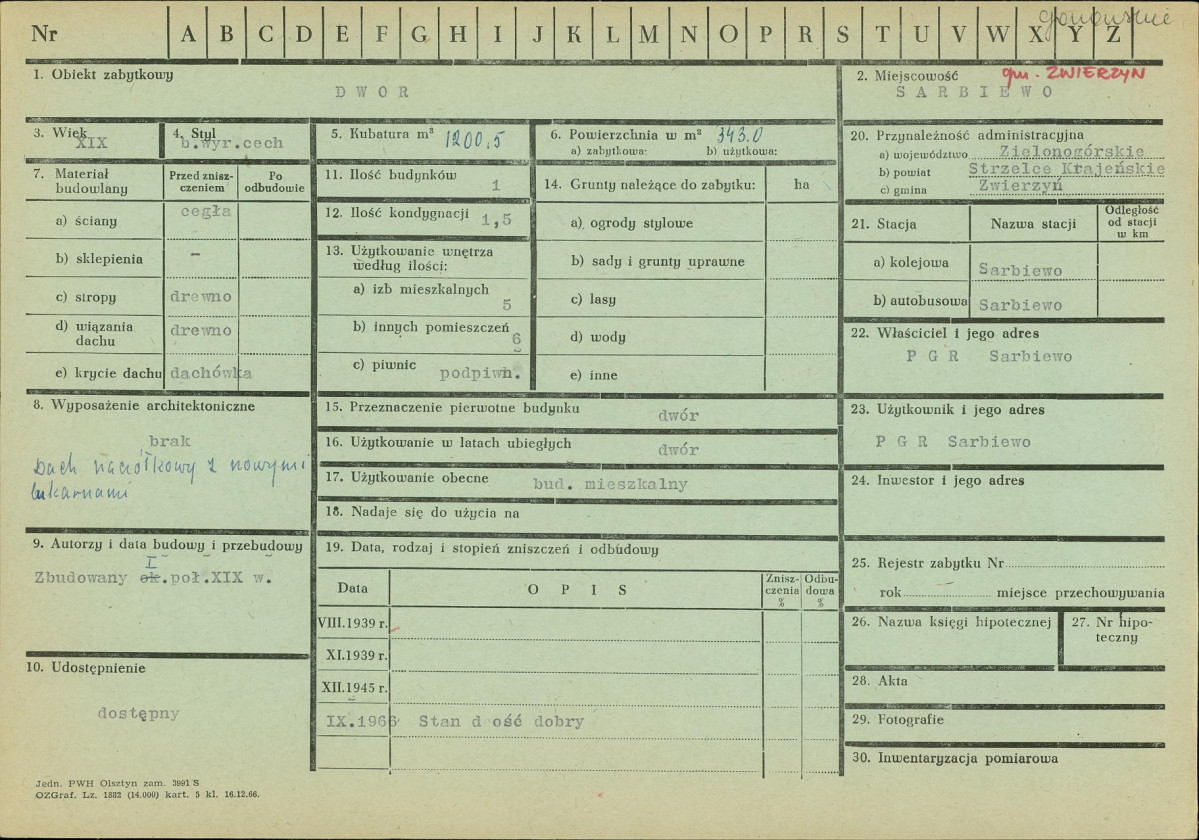 gorzowskie
Nr A B C D E F G H I J K L M N O P R S T U V W X Y Z
1. Obiekt zabytkowy
D W O R
2. Miejscowość gm. ZWIERZYN
S A R B I E W O
3. Wiek
XIX
4. Styl
b.wyr.cech
5. Kubatura m³ 1200,5
6. Powierzchnia w m² 343.0
a) zabytkowa: b) użytkowa:
7. Materiał budowlany
Przed znisz-
czeniem
Po
odbudowie
a) ściany cegła
b) sklepienia –
c) stropy drewno
d) wiązania
dachu drewno
e) krycie dachu dachówka
11. Ilość budynków 1
12. Ilość kondygnacji 1,5
13. Użytkowanie wnętrza
według ilości:
a) izb mieszkalnych
5
b) innych pomieszczeń
6
c) piwnic
podpiwn.
14. Grunty należące do zabytku: ha
a) ogrody stylowe
b) sady i grunty uprawne
c) lasy
d) wody
e) inne
20. Przynależność administracyjna
a) województwo Zielonogórskie
b) powiat Strzelce Krajeńskie
c) gmina Zwierzyń
21. Stacja
Nazwa stacji
Odległość
od stacji
w km
a) kolejowa Sarbiewo
b) autobusowa Sarbiewo
22. Właściciel i jego adres
P G R Sarbiewo
8. Wyposażenie architektoniczne
brak
Dach naczółkowy z nowymi
lukarnami
15. Przeznaczenie pierwotne budynku dwór
16. Użytkowanie w latach ubiegłych dwór
17. Użytkowanie obecne bud. mieszkalny
18. Nadaje się do użycia na
23. Użytkownik i jego adres
P G R Sarbiewo
24. Inwestor i jego adres
9. Autorzy i data budowy i przebudowy
I
Zbudowany ok.poł.XIX w.
10. Udostępnienie
dostępny
19. Data, rodzaj i stopień zniszczeń i odbudowy
Data
O P I S
Znisz-
czenia
%
Odbu-
dowa
%
VIII.1939 r.
XI.1939 r.
XII.1945 r.
IX.1966 Stan d ość dobry
25. Rejestr zabytku Nr
rok miejsce przechowywania
26. Nazwa księgi hipotecznej
27. Nr hipo-
teczny
28. Akta
29. Fotografie
30. Inwentaryzacja pomiarowa
Jedn. PWH Olsztyn zam. 3991 S
OZGraf. Lz. 1882 (14.000) kart. 5 kl. 16.12.66.